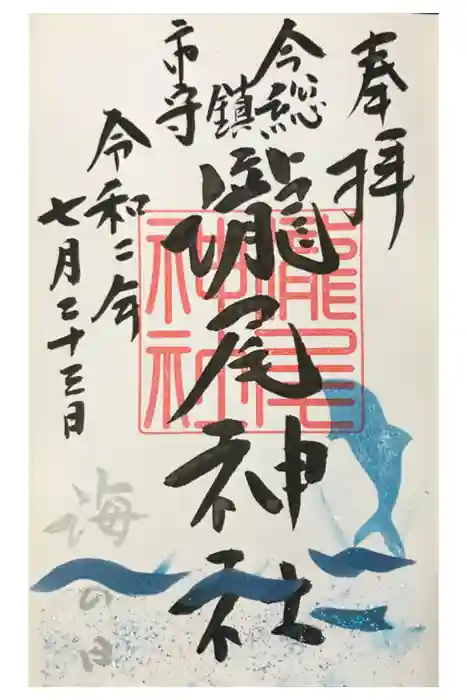 奉拝
今市
総鎮守
瀧尾神社
瀧尾
神社
令和二年
七月二十三日
海の日